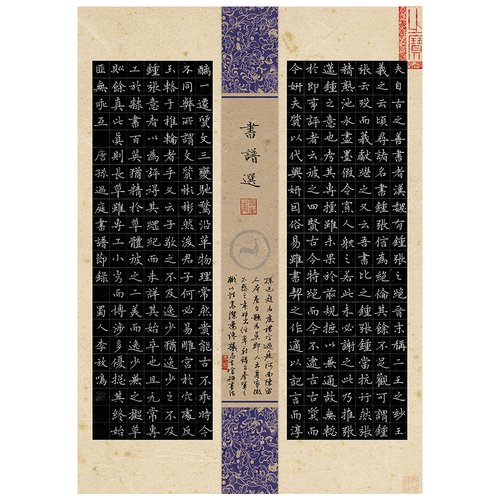 夫自古之善書者漢魏有鍾張之絕晉末稱二王之妙王
羲之云頃尋諸名書鍾張信為絕倫其餘不足觀可謂鍾
張云歿而羲獻繼之又云吾書比之鍾張鍾當抗行然張
精熟池水盡墨假令寡人耽之若此未必謝之此乃推張
邁鍾之意也考其專擅雖未果於前規摭以兼通故無慚
於即事評者云彼之四賢古今特絕而今不逮古古質而
今妍夫質以代興妍因俗易雖書契之作適以記言而淳
書譜選
醨一遷質文三變馳騖沿革物理常然貴能古不乖時今
不同弊所謂文質彬彬然後君子何必易雕宮於穴處反
玉輅於椎輪者乎又云子敬之不及逸少猶逸少之不及
鍾張意者以為評得其綱紀而未詳其始卒也且元常專
工於隸書百英尤精於草體彼之二美而逸少兼之擬草
則餘真比真則長草雖專工小劣而博涉多優揔其終始
匪無乖互 唐孫過庭書譜節錄 蜀人李放鳴